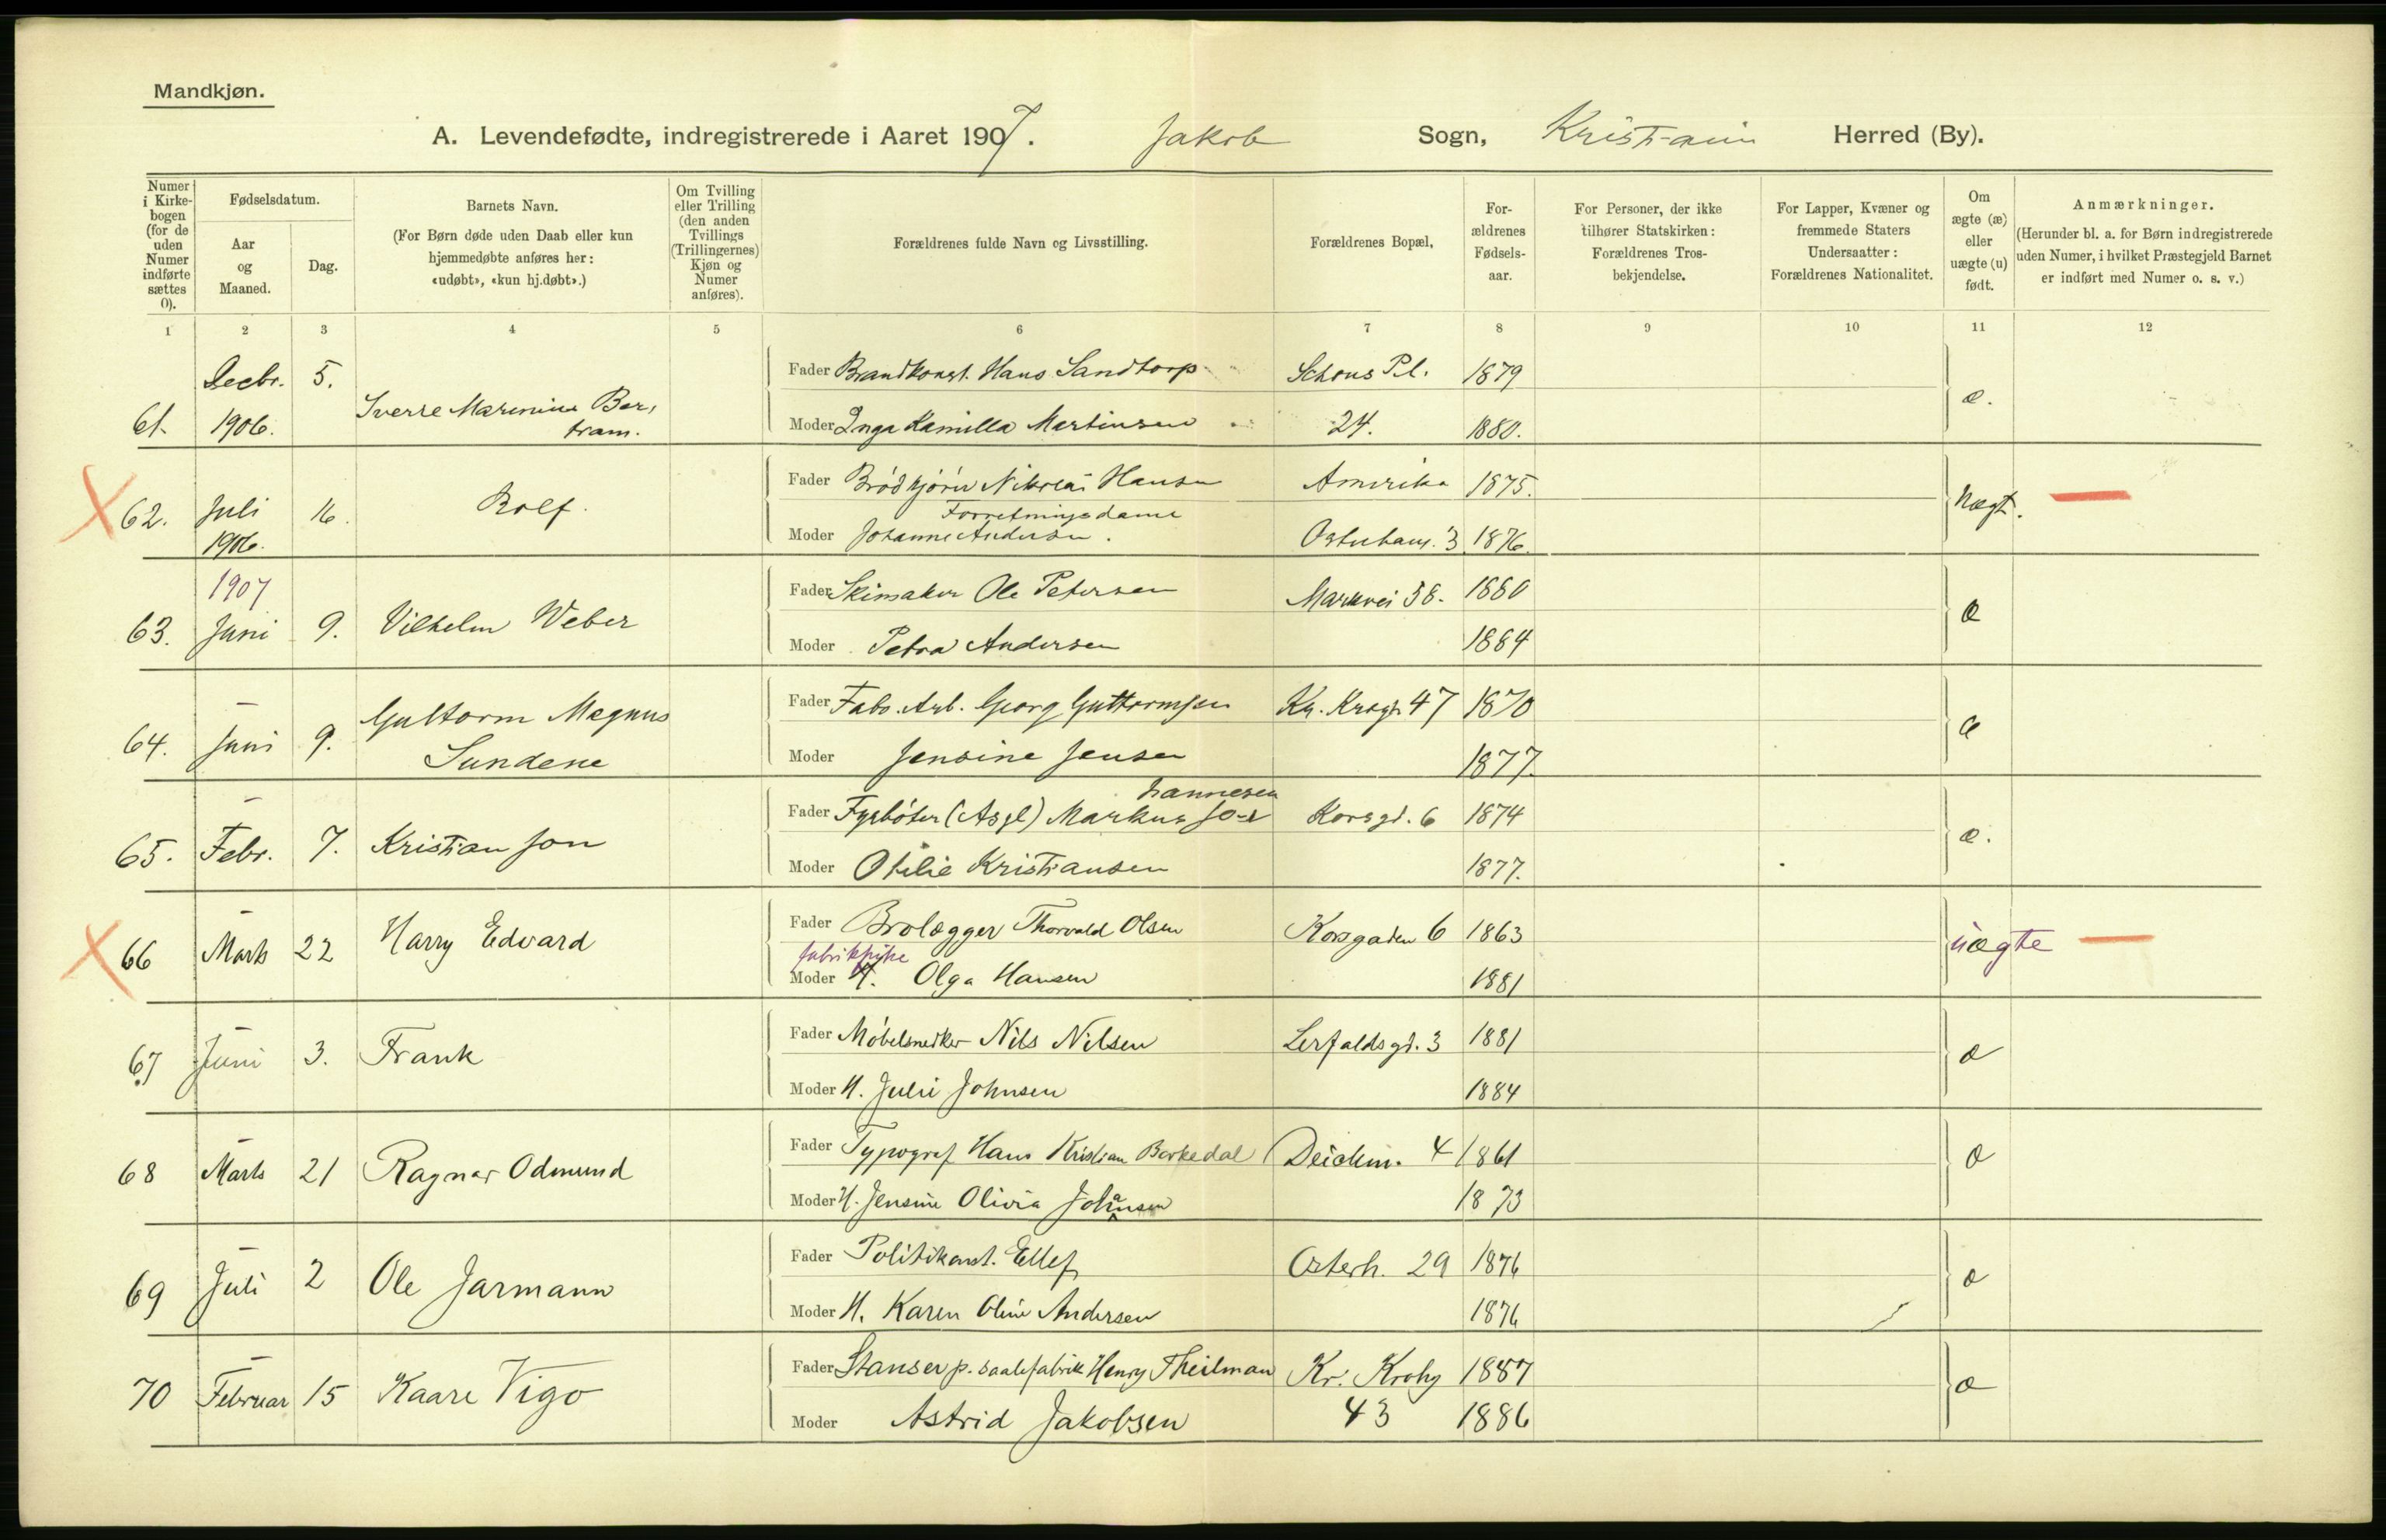 Mandkjøn.
A. Levendefødte, indregistrerede i Aaret 1907. Jakob Sogn, Kristiania Herred (By).
Numer i Kirkebogen (for de uden Numer indførte sættes 0).
Fødselsdatum.
Aar og Maaned.
Dag.
Barnets Navn.
(For Børn døde uden Daab eller kun hjemmedøbte anføres her: «udøbt», «kun hj.døbt».)
Om Tvilling eller Trilling (den anden Tvillings (Trillingernes) Kjøn og Numer anføres).
Forældrenes fulde Navn og Livsstilling.
Forældrenes Bopæl,
Forældrenes Fødselsaar.
For Personer, der ikke tilhører Statskirken: Forældrenes Trosbekjendelse.
For Lapper, Kvæner og fremmede Staters Undersaatter: Forældrenes Nationalitet.
Om ægte (æ) eller uægte (u) født.
Anmærkninger.
(Herunder bl. a. for Børn indregistrerede uden Numer, i hvilket Præstegjeld Barnet er indført med Numer o. s. v.)
1 2 3 4 5 6 7 8 9 10 11 12
61. Decbr. 1906. 5. Sverre Marenius Bertram. Fader Brandkonst. Hans Sandtorp Schous Pl. 1879 æ.
Moder Inga Kamilla Martinsen 24. 1880.
62. Juli 1906. 16. Rolf. Fader Brödkjörer Nikolai Hansen Amerika 1875. Uægt.
Forretningsdame
Moder Johanne Andersen. Osterhaus. 3 1876.
1907
63. Juni 9. Vilhelm Weber Fader Skimaker Ole Petersen Markvei 58. 1880 æ
Moder Petra Andersen 1884
64. Juni 9. Guttorm Magnus Sundene Fader Fabr. Arb. Georg Guttormsen Kr. Kroghs 47 1870 æ
Moder Jensine Jensen 1877.
65. Febr. 7. Kristian Jon Fader Fyrböter (Asyl) Markus Johannesen Korsgd. 6 1874 æ.
Moder Otilie Kristiansen 1877.
66 Marts 22 Harry Edvard Fader Brolægger Thorvald Olsen Korsgaden 6 1863 uægte
fabrikpike
Moder H. Olga Hansen 1881
67 Juni 3. Frank Fader Möbelsnedker Nils Nilsen Lerfaldsgd. 3 1881 æ
Moder H. Julie Johnsen 1884
68 Marts 21 Ragnar Odmund Fader Typograf Hans Kristian Barkedal Deichm. 4 1861 æ
Moder H. Jensine Olivia Johansen 1873
69 Juli 2 Ole Jarmann Fader Politikonst. Ellef Osterh. 29 1876 æ
Moder H. Karen Oline Andersen 1876
70 Februar 15 Kaare Vigo Fader Stanser p. saalefabrik Henry Theilman Kr. Krohg 1887 æ
Moder Astrid Jakobsen 43 1886